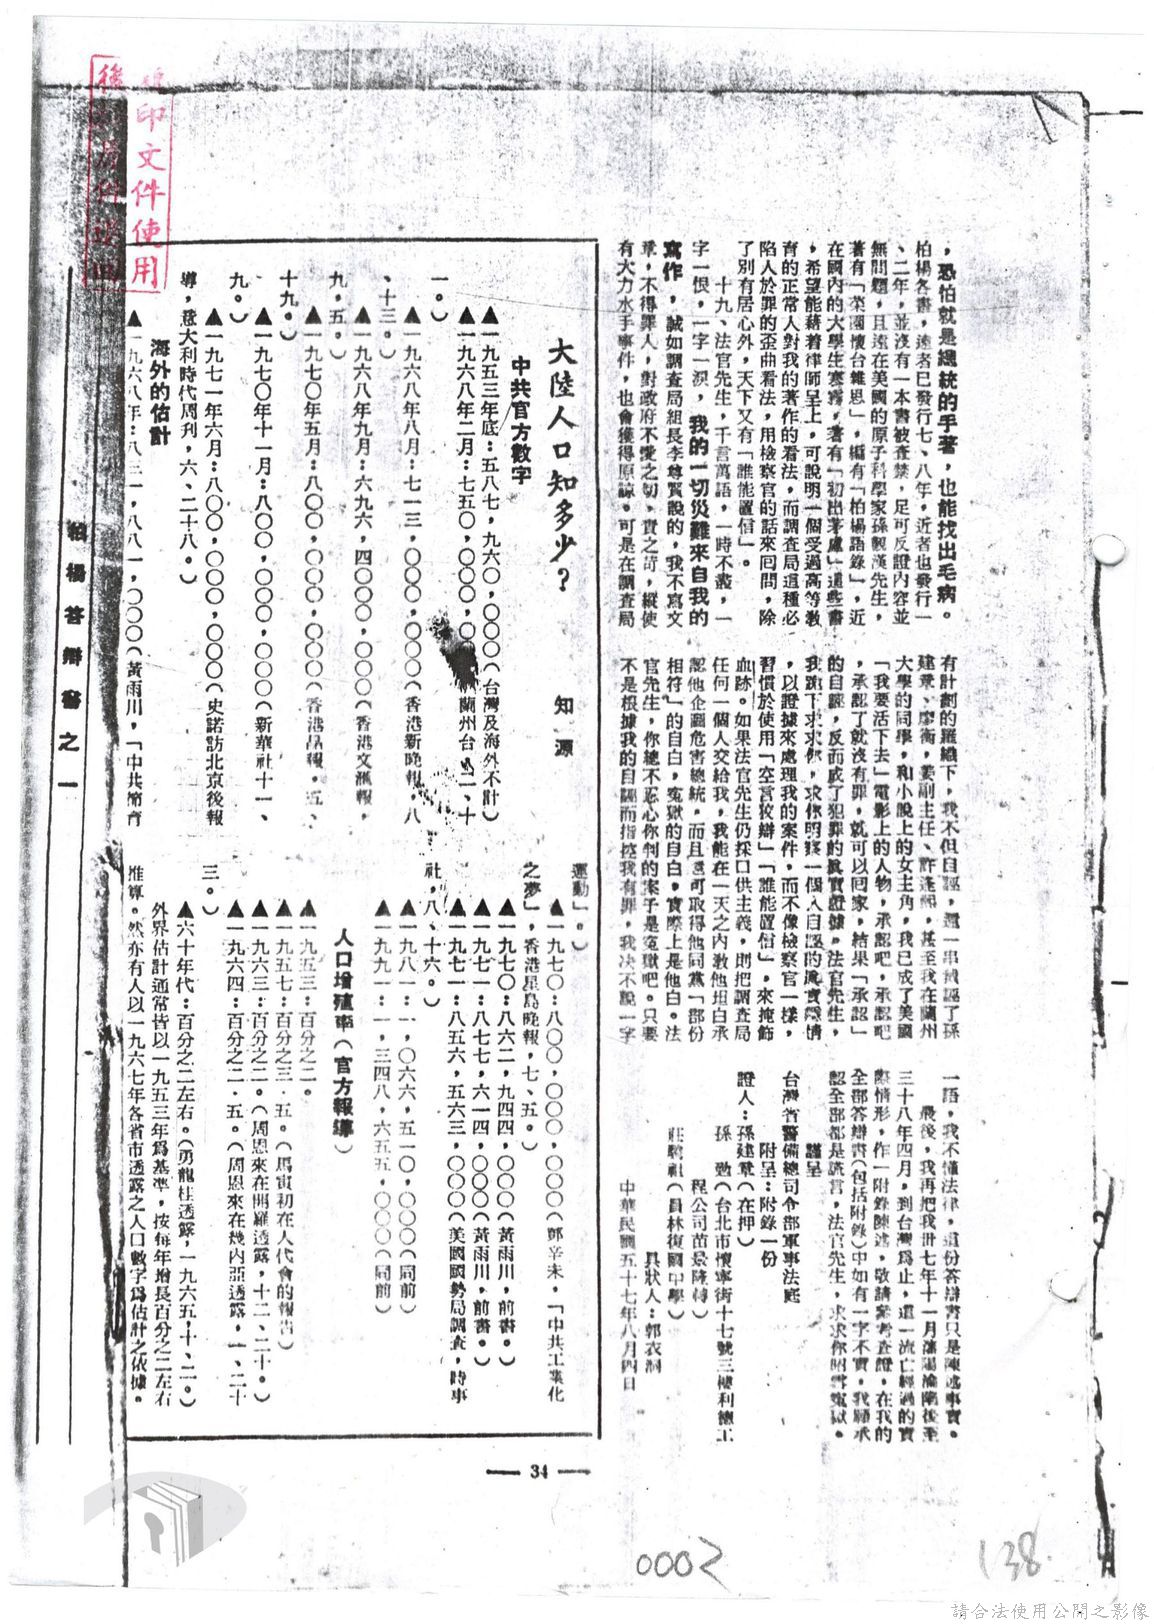 ，恐怕就是總統的手著，也能找出毛病。
柏楊各書，遠者已發行七、八年，近者也發行一
、二年，並沒有一本書被查禁，足可反證內容並
無問題，且遠在美國的原子科學家孫觀漢先生，
著有「菜園懷台雜思」，編有「柏楊語錄」，近
在國內的大學生寒霧，著有「初出茅廬」這些書
，希望能藉着律師呈上，可說明一個受過高等教
育的正常人對我的著作的看法，而調查局這種必
陷人於罪的歪曲看法，用檢察官的話來囘問，除
了別有居心外，天下又有「誰能置信」。
十九、法官先生，千言萬語，一時不叢，一
字一恨，一字一淚，我的一切災難來自我的
寫作，誠如調查局組長李尊賢說的，我不寫文
章，不得罪人，對政府不愛之切，責之苛，縱使
有大力水手事件，也會獲得原諒。可是在調查局
有計劃的羅織下，我不但自誣，還一串誠誣了孫
建章、廖衡，姜副主任、許逢熙，甚至我在蘭州
大學的同學，和小說上的女主角，我已成了美國
「我要活下去」電影上的人物，承認吧，承認吧
，承認了就沒有罪，就可以囘家，結果「承認」
的自誣，反而成了犯罪的眞實證據。法官先生，
我跪下求求你，求你明察一個人自誣的眞實經情
，以證據來處理我的案件，而不像檢察官一樣，
習慣於使用「空言狡辯」「誰能置信」，來掩飾
血跡。如果法官先生仍採口供主義，則把調查局
任何一個人交給我，我能在一天之內教他坦白承
認他企圖危害總統，而且還可取得他同黨「部份
相符」的自白，寃獄的自白，實際上是他白。法
官先生，你總不忍心你判的案子是寃獄吧。只要
不是根據我的自誣而指控我有罪，我决不說一字
一語，我不懂法律，這份答辯書只是陳述事實。
最後，我再把我卅七年十一月瀋陽淪陷後至
三十八年四月，到台灣爲止，這一流亡經過的實
際情形，作一附錄陳述，敬請參考查證，在我的
全部答辯書（包括附錄）中如有一字不實，我願承
認全部都是謊言，法官先生，求求你昭雪寃獄。
謹呈
台灣省警備總司令部軍事法庭
附呈：附錄一份
證人：孫建章（在押）
孫　勁（台北市懷寧街十七號三樓利德工
程公司苗景隆轉）
莊馳祖（員林復國中學）
具狀人：郭衣洞
中華民國五十七年八月四日
大陸人口知多少？
知源
中共官方數字
▲一九五三年底：五八七，九六〇，〇〇〇（台灣及海外不計）
▲一九六八年二月：七五〇，〇〇〇，〇〇　蘭州台，二、十
一。）
▲一九六八年八月：七一三，〇〇〇，〇〇〇（香港新晚報，八
、十三。）
▲一九六八年九月：六九六，四〇〇〇，〇〇〇（香港文滙報，
九，五。）
▲一九七〇年五月：八〇〇，〇〇〇，〇〇〇（香港晶報，五、
十九。）
▲一九七〇年十一月：八〇〇，〇〇〇，〇〇〇（新華社十一、
九。）
▲一九七一年六月：八〇〇，〇〇〇，〇〇〇（史諾訪北京後報
導，意大利時代周刋，六、二十八。）
海外的估計
▲一九六八年：八三一，八八一，〇〇〇（黃雨川，「中共節育
運動」。）
▲一九七〇：八〇〇，〇〇〇，〇〇〇（鄭辛未，「中共工業化
之夢」，香港星島晚報，七、五。）
▲一九七〇：八六二，九四四，〇〇〇（黃雨川，前書。）
▲一九七一：八七七，六一四，〇〇〇（黃雨川，前書。）
▲一九七一：八五六，五六三，〇〇〇（美國國勢局調査，時事
社，八、十六。）
▲一九八一：一，〇六六，五一〇，〇〇〇（同前）
▲一九九一：一，三四八，六五五，〇〇〇（同前）
人口增殖率（官方報導）
▲一九五三：百分之二。
▲一九五七：百分之三．五。（馬寅初在人代會的報告）
▲一九六三：百分之二。（周恩來在開羅透露，十二、二十。）
▲一九六四：百分之二．五。（周恩來在幾內亞透露，一、二十
三。）
▲六十年代：百分之二左右。（勇龍桂透露，一九六五，十、二。）
外界估計通常皆以一九五三年爲基準，按每年增長百分之二左右
推算。然亦有人以一九六七年各省市透露之人口數字爲估計之依據。
柏楊答辯書之一
— 34 —
印文件使用
後
0002
138
請合法使用公開之影像